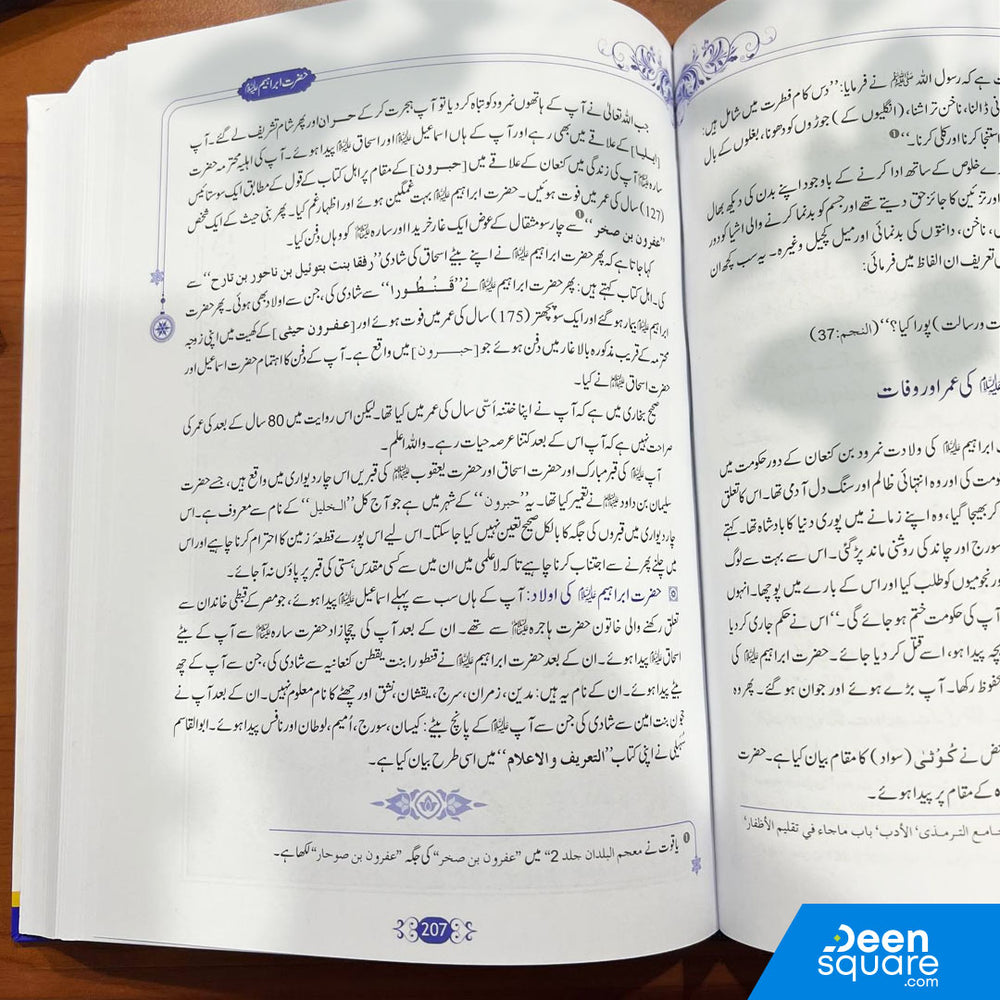 حضرت ابراہیم علیہ السلام
جب اللہ تعالیٰ نے آپ کے ہاتھوں نمرود کو تباہ کر دیا تو آپ ہجرت کر کے حران اور پھر شام تشریف لے گئے۔ آپ
[ایلیا] کے علاقے میں بھی رہے اور آپ کے ہاں اسماعیل علیہ السلام اور اسحاق علیہ السلام پیدا ہوئے۔ آپ کی اہلیہ محترمہ حضرت
سارہ علیہا السلام آپ کی زندگی میں کنعان کے علاقے میں [حبرون] کے مقام پر اہل کتاب کے قول کے مطابق ایک سو ستائیس
(127) سال کی عمر میں فوت ہوئیں۔ حضرت ابراہیم علیہ السلام بہت غمگین ہوئے اور اظہار غم کیا۔ پھر بنی حیث کے ایک شخص
”عفرون بن صخر“❶ سے چار سو مثقال کے عوض ایک غار خریدا اور سارہ علیہا السلام کو وہاں دفن کیا۔
کہا جاتا ہے کہ پھر حضرت ابراہیم علیہ السلام نے اپنے بیٹے اسحاق کی شادی ”رفقا بنت بتوئیل بن ناحور بن تارح“ سے
کی۔ اہل کتاب کہتے ہیں: پھر حضرت ابراہیم علیہ السلام نے ”قنطورا“ سے شادی کی، جن سے اولاد بھی ہوئی۔ پھر حضرت
ابراہیم علیہ السلام بیمار ہو گئے اور ایک سو پچھتر (175) سال کی عمر میں فوت ہوئے اور [عفرون حیثی] کے کھیت میں اپنی زوجہ
محترمہ کے قریب مذکورہ بالا غار میں دفن ہوئے جو [حبرون] میں واقع ہے۔ آپ کے دفن کا اہتمام حضرت اسماعیل اور
حضرت اسحاق علیہما السلام نے کیا۔
صحیح بخاری میں ہے کہ آپ نے اپنا ختنہ اَسّی سال کی عمر میں کیا تھا۔ لیکن اس روایت میں 80 سال کے بعد کی عمر کی
صراحت نہیں ہے کہ آپ اس کے بعد کتنا عرصہ حیات رہے۔ واللہ اعلم۔
آپ علیہ السلام کی قبر مبارک اور حضرت اسحاق اور حضرت یعقوب علیہما السلام کی قبریں اس چار دیواری میں واقع ہیں، جسے حضرت
سلیمان بن داود علیہما السلام نے تعمیر کیا تھا۔ یہ ”حبرون“ کے شہر میں ہے جو آج کل ”الخلیل“ کے نام سے معروف ہے۔ اس
چار دیواری میں قبروں کی جگہ کا بالکل صحیح تعین نہیں کیا جا سکتا۔ اس لیے اس پورے قطعۂ زمین کا احترام کرنا چاہیے اور اس
میں چلنے پھرنے سے اجتناب کرنا چاہیے تا کہ لاعلمی میں ان میں سے کسی مقدس ہستی کی قبر پر پاؤں نہ آ جائے۔
حضرت ابراہیم علیہ السلام کی اولاد: آپ کے ہاں سب سے پہلے اسماعیل علیہ السلام پیدا ہوئے، جو مصر کے قبطی خاندان سے
تعلق رکھنے والی خاتون حضرت ہاجرہ علیہا السلام سے تھے۔ ان کے بعد آپ کی چچازاد حضرت سارہ علیہا السلام سے آپ کے بیٹے
اسحاق علیہ السلام پیدا ہوئے۔ ان کے بعد حضرت ابراہیم علیہ السلام نے قنطورا بنت یقطن کنعانیہ سے شادی کی، جن سے آپ کے چھ
بیٹے پیدا ہوئے۔ ان کے نام یہ ہیں: مدین، زمران، سرج، یقشان، نشق اور چھٹے کا نام معلوم نہیں۔ ان کے بعد آپ نے
حجون بنت امین سے شادی کی جن سے آپ علیہ السلام کے پانچ بیٹے: کیسان، سورج، اُمیم، لوطان اور نافس پیدا ہوئے۔ ابوالقاسم
سُہیلی نے اپنی کتاب ”التعریف والاعلام“ میں اسی طرح بیان کیا ہے۔
❶ یاقوت نے معجم البلدان جلد 2 میں ”عفرون بن صخر“ کی جگہ ”عفرون بن صوحار“ لکھا ہے۔
207
ہے کہ رسول اللہ ﷺ نے فرمایا: ”دس کام فطرت میں شامل ہیں:
ڈالنا، ناخن تراشنا، (انگلیوں کے) جوڑوں کو دھونا، بغلوں کے بال
استنجا کرنا اور کلی کرنا۔“❶
خلوص کے ساتھ ادا کرنے کے باوجود اپنے بدن کی دیکھ بھال
اور تزئین کا جائز حق دیتے تھے اور جسم کو بدنما کرنے والی اشیا کو دور
ناخن، دانتوں کی بدنمائی اور میل کچیل وغیرہ۔ یہ سب کچھ ان
تعریف ان الفاظ میں فرمائی:
و رسالت) پورا کیا؟“ (النجم:37)
علیہ السلام کی عمر اور وفات
ابراہیم علیہ السلام کی ولادت نمرود بن کنعان کے دور حکومت میں
حکومت کی اور وہ انتہائی ظالم اور سنگ دل آدمی تھا۔ اس کا تعلق
کر بھیجا گیا، وہ اپنے زمانے میں پوری دنیا کا بادشاہ تھا۔ کہتے
سورج اور چاند کی روشنی ماند پڑ گئی۔ اس سے بہت سے لوگ
نجومیوں کو طلب کیا اور اس کے بارے میں پوچھا۔ انہوں
آپ کی حکومت ختم ہو جائے گی۔“ اس نے حکم جاری کر دیا
بچہ پیدا ہو، اسے قتل کر دیا جائے۔ حضرت ابراہیم علیہ السلام کی
محفوظ رکھا۔ آپ بڑے ہوئے اور جوان ہو گئے۔ پھر وہ
نے کُوثٰی (سواد) کا مقام بیان کیا ہے۔ حضرت
کے مقام پر پیدا ہوئے۔
جامع الترمذی، الأدب، باب ماجاء فی تقلیم الأظفار،
Deen
square
.com